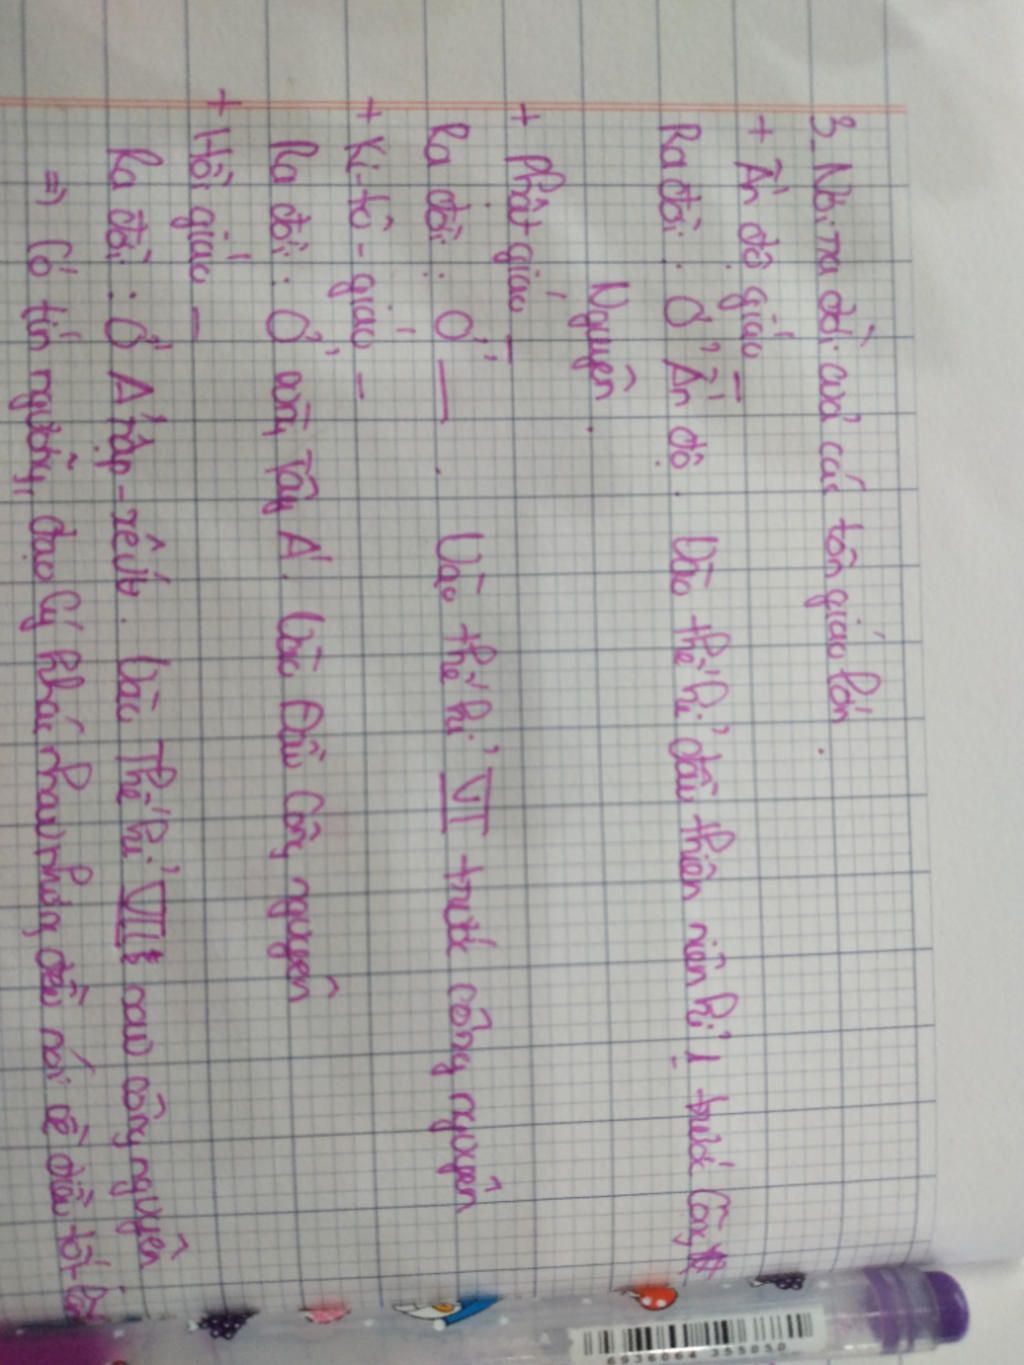 3. Nơi ra đời của các tôn giáo lớn.
+ Ấn độ giáo _
Ra đời: Ở Ấn độ. Vào thế kỉ đầu thiên niên kỉ 1 trước Công
Nguyên.
+ Phật giáo _
Ra đời: Ở — . Vào thế kỉ VI trước công nguyên
+ Ki-tô-giáo _
Ra đời: Ở vùng Tây Á. Vào Đầu Công nguyên
+ Hồi giáo _
Ra đời: Ở Ả rập-xê-út. Vào Thế kỉ VII sau công nguyên
=> Có tín ngưỡng, đạo lý khác nhau nhưng đều nói về điều tốt
6936064 355050